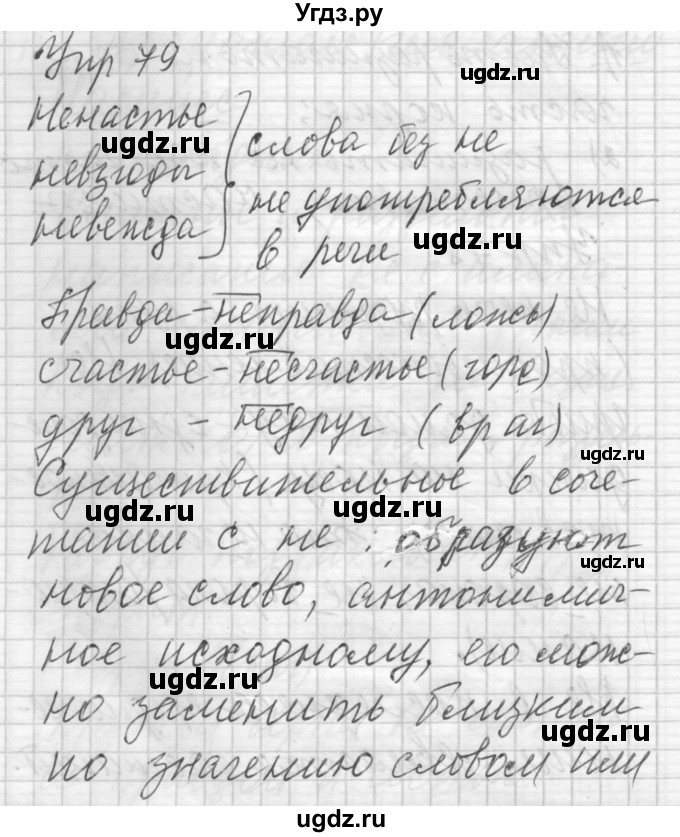 Угдз.ру
Упр 79
ugdz.ru
Ненастье
ugdz.ru
слова без не
невзгоды
не употребляются
невежда
ugdz.ru
в речи
Правда-неправда (ложь)
ugdz.ru
счастье-несчастье (горе)
друг - недруг (враг)
ugdz.ru
Существительные в соче-
ugdz.ru
тании с не образуют
ugdz.ru
новое слово, антонимич-
ное исходному, его мож-
ugdz.ru
но заменить близким
ugdz.ru
по значению словом или
ugdz.ru